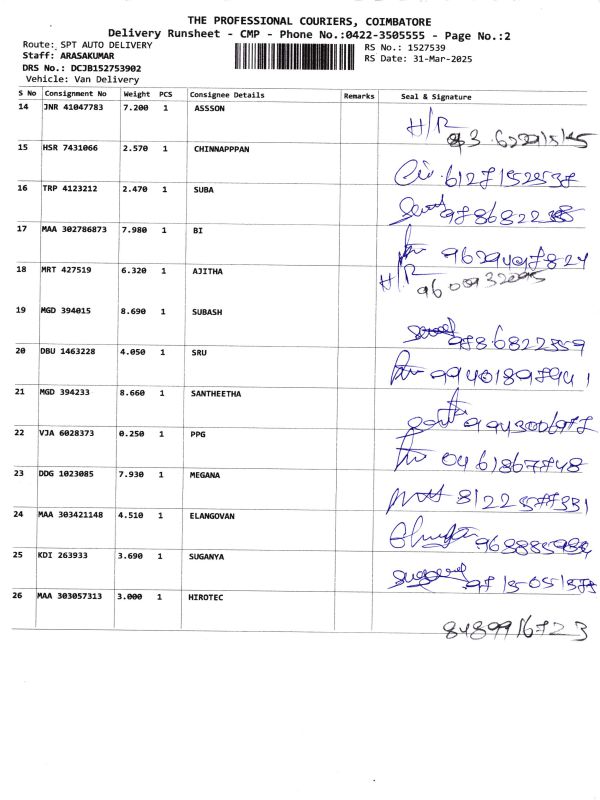 THE PROFESSIONAL COURIERS, COIMBATORE
Delivery Runsheet - CMP - Phone No.:0422-3505555 - Page No.:2
Route: SPT AUTO DELIVERY
RS No.: 1527539
Staff: ARASAKUMAR
RS Date: 31-Mar-2025
DRS No.: DCJB152753902
Vehicle: Van Delivery
S No Consignment No Weight PCS Consignee Details Remarks Seal & Signature
14 JNR 41047783 7.200 1 ASSSON H/R
15 HSR 7431066 2.570 1 CHINNAPPPAN
16 TRP 4123212 2.470 1 SUBA
17 MAA 302786873 7.980 1 BI
18 MRT 427519 6.320 1 AJITHA H/R
19 MGD 394015 8.690 1 SUBASH 9786822559
20 DBU 1463228 4.050 1 SRU 9940189794 1
21 MGD 394233 8.660 1 SANTHEETHA
22 VJA 6028373 0.250 1 PPG 04 61867748
23 DDG 1023085 7.930 1 MEGANA 8122577331
24 MAA 303421148 4.510 1 ELANGOVAN
25 KDI 263933 3.690 1 SUGANYA
26 MAA 303057313 3.000 1 HIROTEC 8489916723